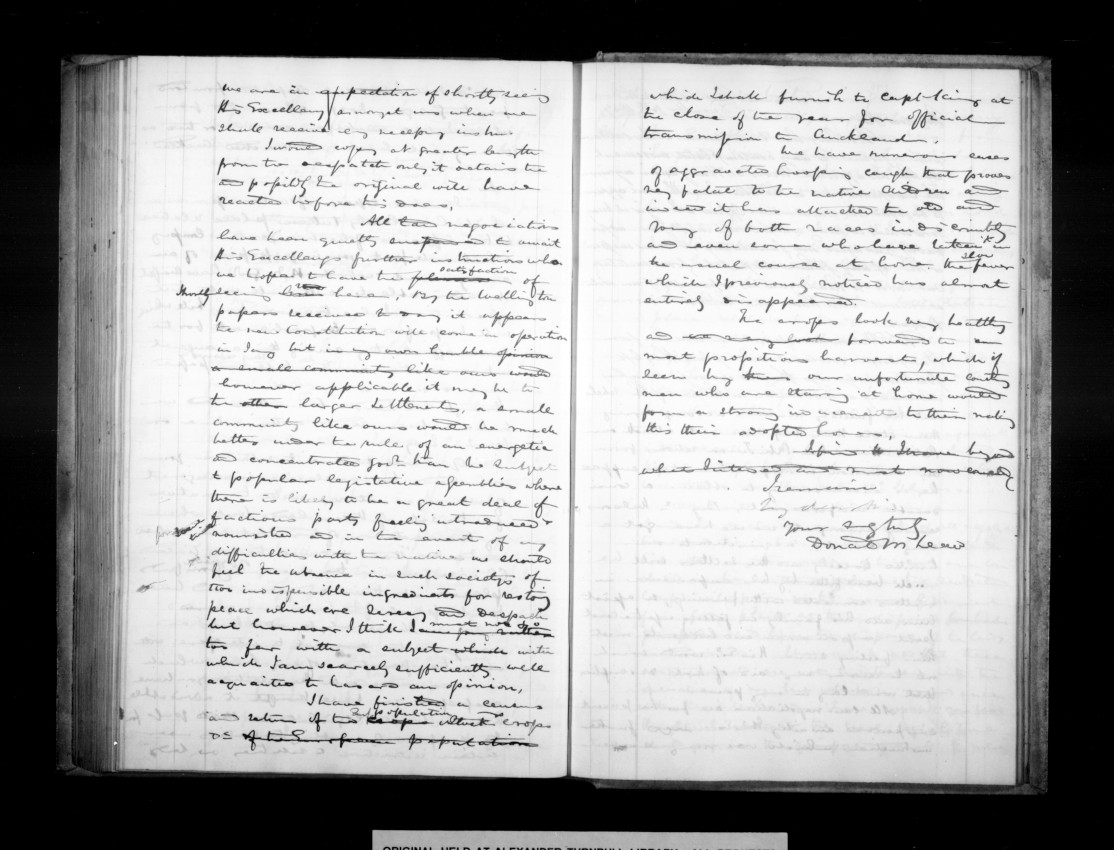 we are in expectation of shortly seeing
His Excellency amongst us when we
shall receive any necessary instrns
I would copy at greater length
from the despatch only it detains the
and possibly the original will have
reached before this does.
All land negociations
have been quietly suspended to await
His Excellency's further instructions who
we hope to have the pleasure satisfaction of
Shortly seeing here, By the Wellington
papers received to day it appears
the new Constitution will come in operation
in Jany but in my own humble opinion
a small community like ours would
however applicable it may be to
the other larger Settlements, a small
community like ours would be much
better under the rule of an energetic
and concentrated govt than the subject
to popular legislative assemblies where
there is likely to be a great deal of
factious party feeling introduced &
nourished and in the event of any
difficulties with the natives we should
feel the absence in such society of
two indispensible ingredients for restoring
peace which are secrecy and despatch
but however I think I am going must not go rather
too far with a subject which with
which I am scarcely sufficiently well
acquainted to hazard an opinion,
I have finished a census
and return of the population crops stock crops
&c of the European population
which I shall furnish to Capt King at
the close of the year for official
transmission to Auckland.
We have numerous cases
of aggravated hooping cough that proves
very fatal to the native children and
indeed it has attacked the old and
young of both races indiscriminately
and even some who have taken it in
the usual course at home. The slow fever
which I previously noticed has almost
entirely disappeared.
The crops look very healthy
and are very look forward to an
most propitious harvest, which if
seen by them our unfortunate country
men who are starving at home would
form a strong inducement to their making
this their adopted homes.
I find I have beyond
what I intended and must now conclude
I remain
My dear Sir
Yours very truly
Donald McLean
ORIGINAL HELD AT ALEXANDER TURNBULL LIBRARY